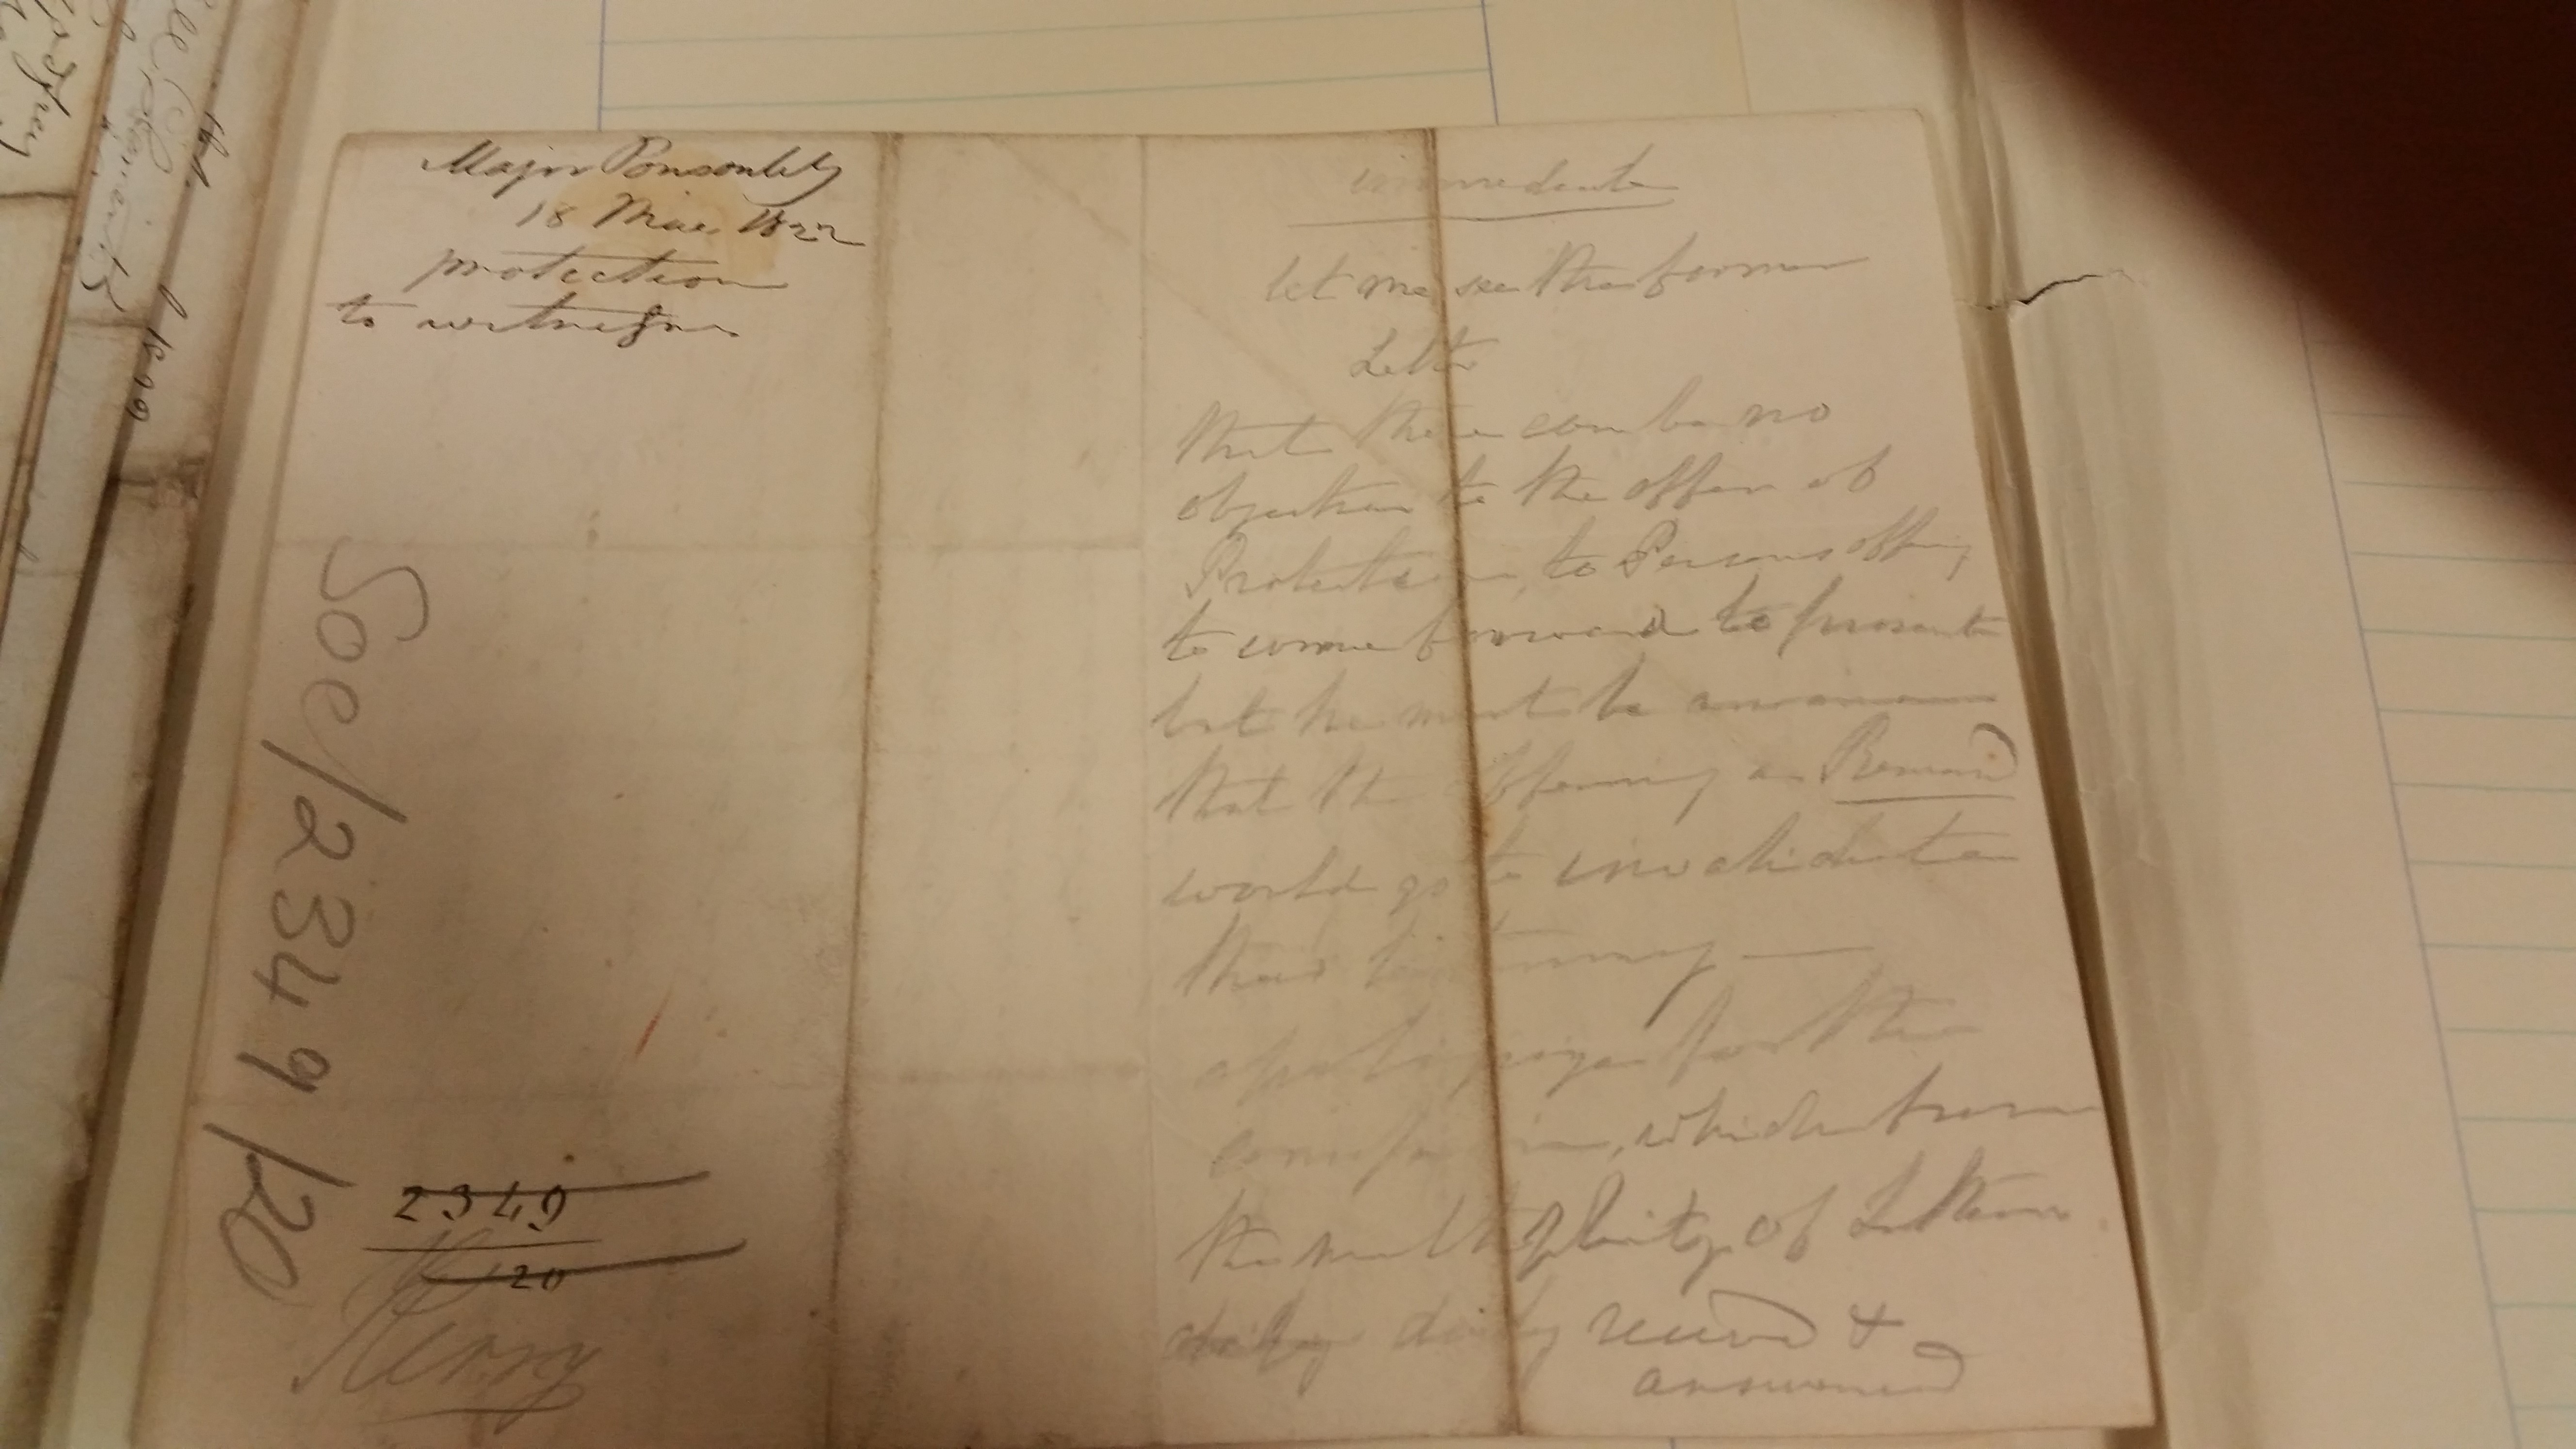 Major Ponsonby
18 Mar 1822
protection
to witnesses
Soc/2349/20
2349
20
Kerry
immediate
let me see the former
Letter
that there can be no
objection to the offer of
Protection, to Persons offering
to come forward to prosecute
but he must be aware
that the offering a Reward
would go to invalidate
their testimony —
apologize for the
confusion, which from
the multiplicity of Letters
daily received &
answered